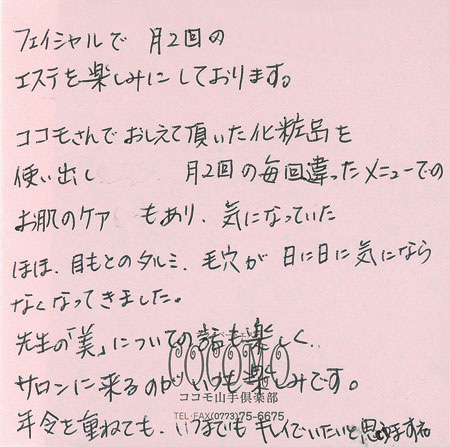 フェイシャルで 月2回の
エステを楽しみにしております。
ココモさんでおしえて頂いた化粧品を
使い出し 月2回の毎回違ったメニューでの
お肌のケア もあり、気になっていた
ほほ、目もとのタルミ、毛穴が 日に日に気になら
なくなってきました。
先生の「美」についての話も楽しく、
サロンに来るのがいつも楽しみです。
ココモ山手倶楽部
TEL・FAX(0773)75-6675
年令を重ねても、いつまでもキレイでいたいと思います。